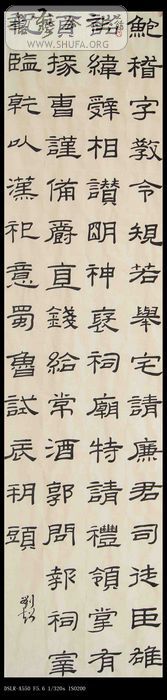 WWW.SHUFA.ORG
稽字教令規若舉宅請廉君司徒臣雄
緯辭相讃明神褒祠廟特請禮領掌有
掾曹謹備爵直錢給常酒郭問報祠宰
臨乾以漢祀意蜀魯試辰朔頭
DSLR-A550 F5.6 1/320s ISO200